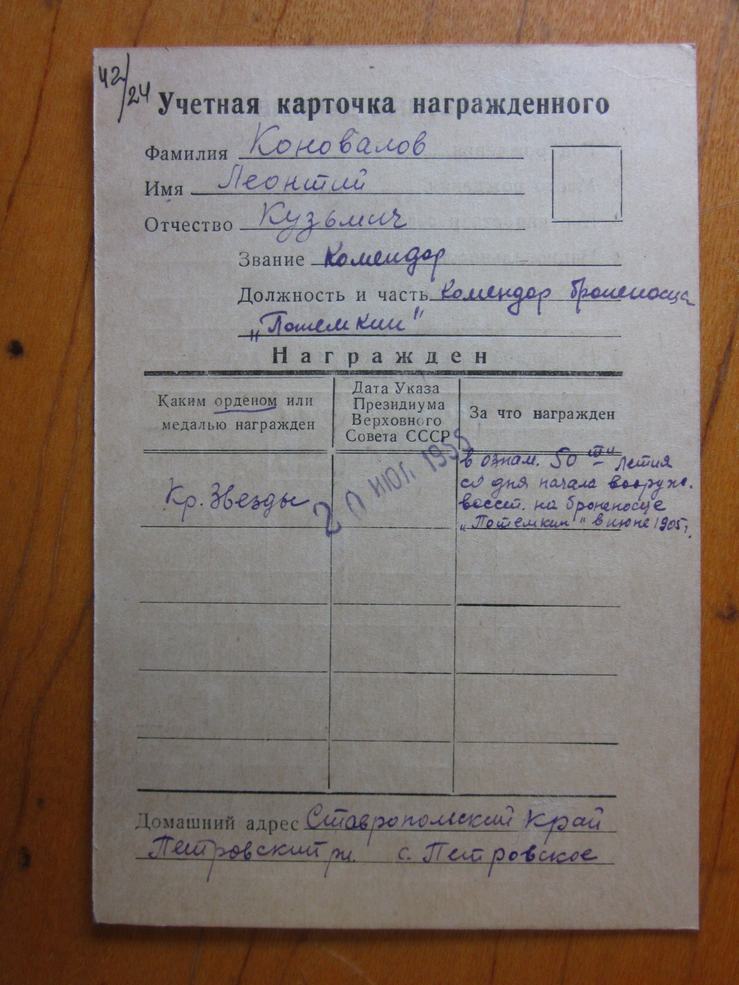 42/24
Учетная карточка награжденного
Фамилия Коновалов
Имя Леонтий
Отчество Кузьмич
Звание Комендор
Должность и часть Комендор броненосца
„Потемкин"
Награжден
Каким орденом или
медалью награжден
Дата Указа
Президиума
Верховного
Совета СССР
За что награжден
Кр. Звезды
20 ИЮЛ 1955
в ознам. 50ти летия
со дня начала вооруж.
восст. на броненосце
„Потемкин" в июне 1905г.
Домашний адрес Ставропольский Край
Петровский рн. с. Петровское